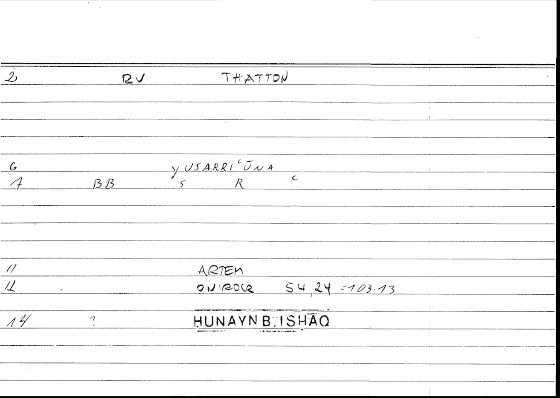 2 RV THATTON
6 yUSARRIʿŪNA
7 BB S R ʿ
11 ARTEM
12 ONIROCR 54,24 =103.13
14 ? HUNAYN B. ISHĀQ